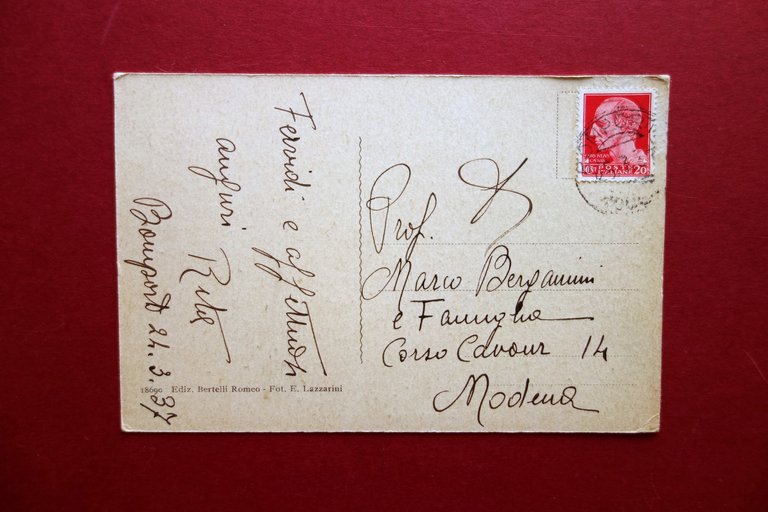 Fervidi e affettuosi
auguri Rita
Bomporto 24.3.37
18690 Ediz. Bertelli Romeo - Fot. E. Lazzarini
Prof.
Marco Bergamini
e Famiglia
Corso Cavour 14
Modena
POSTE
ITALIANE
20